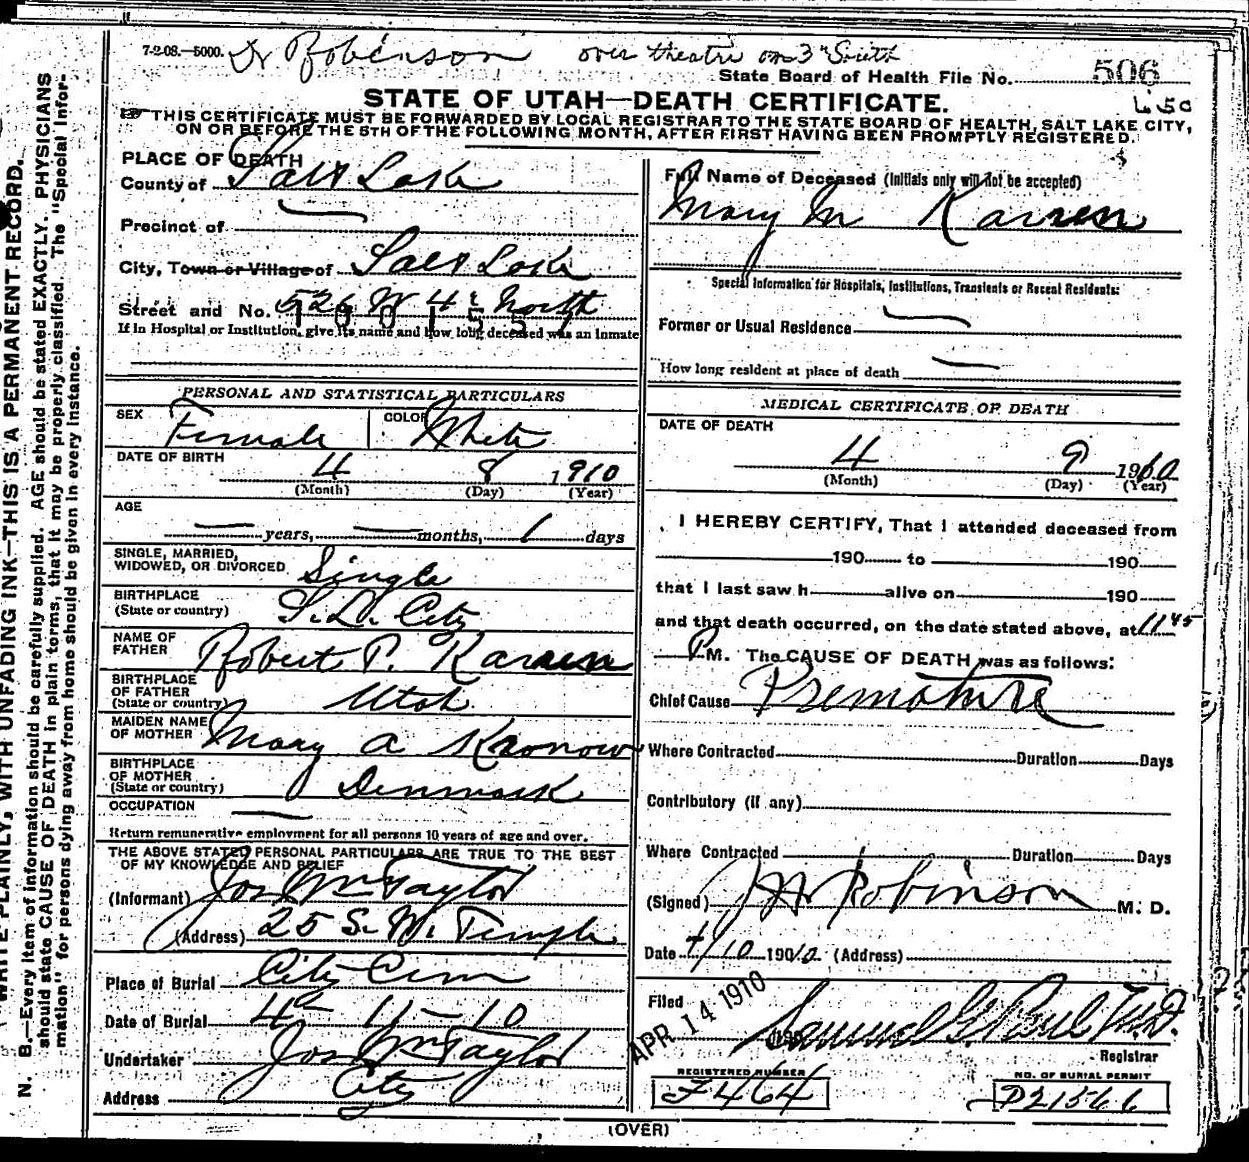 7-2-08.—5000. Dr Robinson over theatre on 3rd South
State Board of Health File No. 506
STATE OF UTAH—DEATH CERTIFICATE.
THIS CERTIFICATE MUST BE FORWARDED BY LOCAL REGISTRAR TO THE STATE BOARD OF HEALTH, SALT LAKE CITY,
ON OR BEFORE THE 5TH OF THE FOLLOWING MONTH, AFTER FIRST HAVING BEEN PROMPTLY REGISTERED.
PLACE OF DEATH
County of Salt Lake
Precinct of —
City, Town or Village of Salt Lake
Street and No. 526 W 4th North
If in Hospital or Institution, give its name and how long deceased was an Inmate
PERSONAL AND STATISTICAL PARTICULARS
SEX Female COLOR White
DATE OF BIRTH 4 8 1910
(Month) (Day) (Year)
AGE
— years, — months, 1 days
SINGLE, MARRIED,
WIDOWED, OR DIVORCED Single
BIRTHPLACE
(State or country) S. L. City
NAME OF
FATHER Robert P. Karren
BIRTHPLACE
OF FATHER
(State or country) Utah
MAIDEN NAME
OF MOTHER Mary A
BIRTHPLACE
OF MOTHER
(State or country) Denmark
OCCUPATION —
Return remunerative employment for all persons 10 years of age and over.
THE ABOVE STATED PERSONAL PARTICULARS ARE TRUE TO THE BEST
OF MY KNOWLEDGE AND BELIEF
(Informant) Jos Wm Taylor
(Address) 25 S. W. Temple
Place of Burial City Cem
Date of Burial 4 - 11 - 10
Undertaker Jos Wm Taylor
Address City
Full Name of Deceased (Initials only will not be accepted)
Mary M Karren
Special Information for Hospitals, Institutions, Transients or Recent Residents:
Former or Usual Residence —
How long resident at place of death —
MEDICAL CERTIFICATE OF DEATH
DATE OF DEATH
4 9 1910
(Month) (Day) (Year)
I HEREBY CERTIFY, That I attended deceased from
190 to 190
that I last saw h alive on 190
and that death occurred, on the date stated above, at 11 45
P M. The CAUSE OF DEATH was as follows:
Chief Cause Premature
Where Contracted Duration Days
Contributory (if any)
Where Contracted Duration Days
(Signed) Robinson M. D.
Date 4/10 1910 (Address)
Filed APR 14 1910 Samuel G. Paul M.D.
Registrar
REGISTERED NUMBER NO. OF BURIAL PERMIT
F464 D21566
(OVER)
WRITE PLAINLY, WITH UNFADING INK—THIS IS A PERMANENT RECORD.
N. B.—Every item of information should be carefully supplied. AGE should be stated EXACTLY. PHYSICIANS
should state CAUSE OF DEATH in plain terms, that it may be properly classified. The "Special Infor-
mation" for persons dying away from home should be given in every instance.